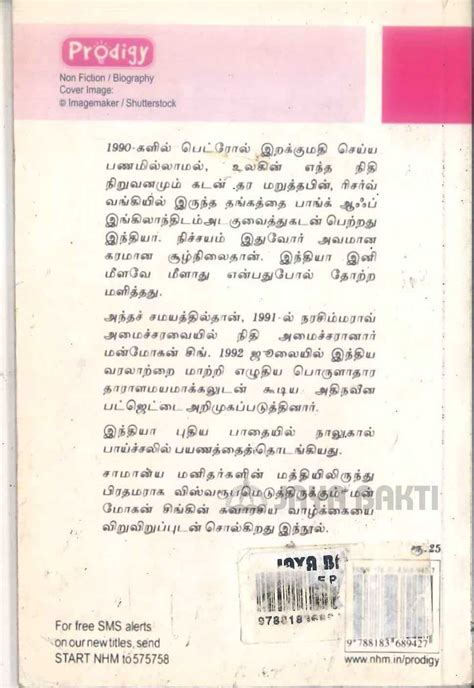 Prodigy
Non Fiction / Biography
Cover Image:
© Imagemaker / Shutterstock
1990-களில் பெட்ரோல் இறக்குமதி செய்ய
பணமில்லாமல், உலகின் எந்த நிதி
நிறுவனமும் கடன் தர மறுத்தபின், ரிசர்வ்
வங்கியில் இருந்த தங்கத்தை பாங்க் ஆஃப்
இங்கிலாந்திடம்அடகுவைத்துகடன் பெற்றது
இந்தியா. நிச்சயம் இதுவோர் அவமான
கரமான சூழ்நிலைதான். இந்தியா இனி
மீளவே மீளாது என்பதுபோல் தோற்ற
மளித்தது.
அந்தச் சமயத்தில்தான், 1991-ல் நரசிம்மராவ்
அமைச்சரவையில் நிதி அமைச்சரானார்
மன்மோகன் சிங். 1992 ஜூலையில் இந்திய
வரலாற்றை மாற்றி எழுதிய பொருளாதார
தாராளமயமாக்கலுடன் கூடிய அதிநவீன
பட்ஜெட்டை அறிமுகப்படுத்தினார்.
இந்தியா புதிய பாதையில் நாலுகால்
பாய்ச்சலில் பயணத்தைத்தொடங்கியது.
சாமான்ய மனிதர்களின் மத்தியிலிருந்து
பிரதமராக விஸ்வரூபமெடுத்திருக்கும் மன்
மோகன் சிங்கின் சுவாரசிய வாழ்க்கையை
விறுவிறுப்புடன் சொல்கிறது இந்நூல்.
JAYA BAKTI
ரூ.25
JAYA B
9 788183 689427
For free SMS alerts
on our new titles, send
START NHM to 575758
www.nhm.in/prodigy